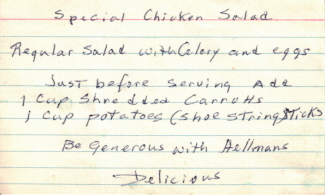 Special Chicken Salad
Regular Salad with Celery and eggs
Just before serving Add
1 Cup Shredded Carrotts
1 Cup potatoes (shoe string sticks
Be Generous with Hellmans
Delicious